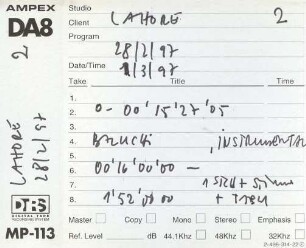 AMPEX
DA8
2
LAHORE
28/2/97
DTRS
DIGITAL TAPE
RECORDING SYSTEM
MP-113
Studio
Client LAHORE 2
Program
28/2/97
Date/Time 1/3/97
Take Title Time
1.
2. 0-00'15'27'05
3.
4. BALUCHI , INSTRUMENTAL
5.
6. 00'16'00'00 -
7.
8. 1'52'00'00
Master Copy Mono Stereo Emphasis
Ref. Level dB 44.1Khz 48Khz 32Khz